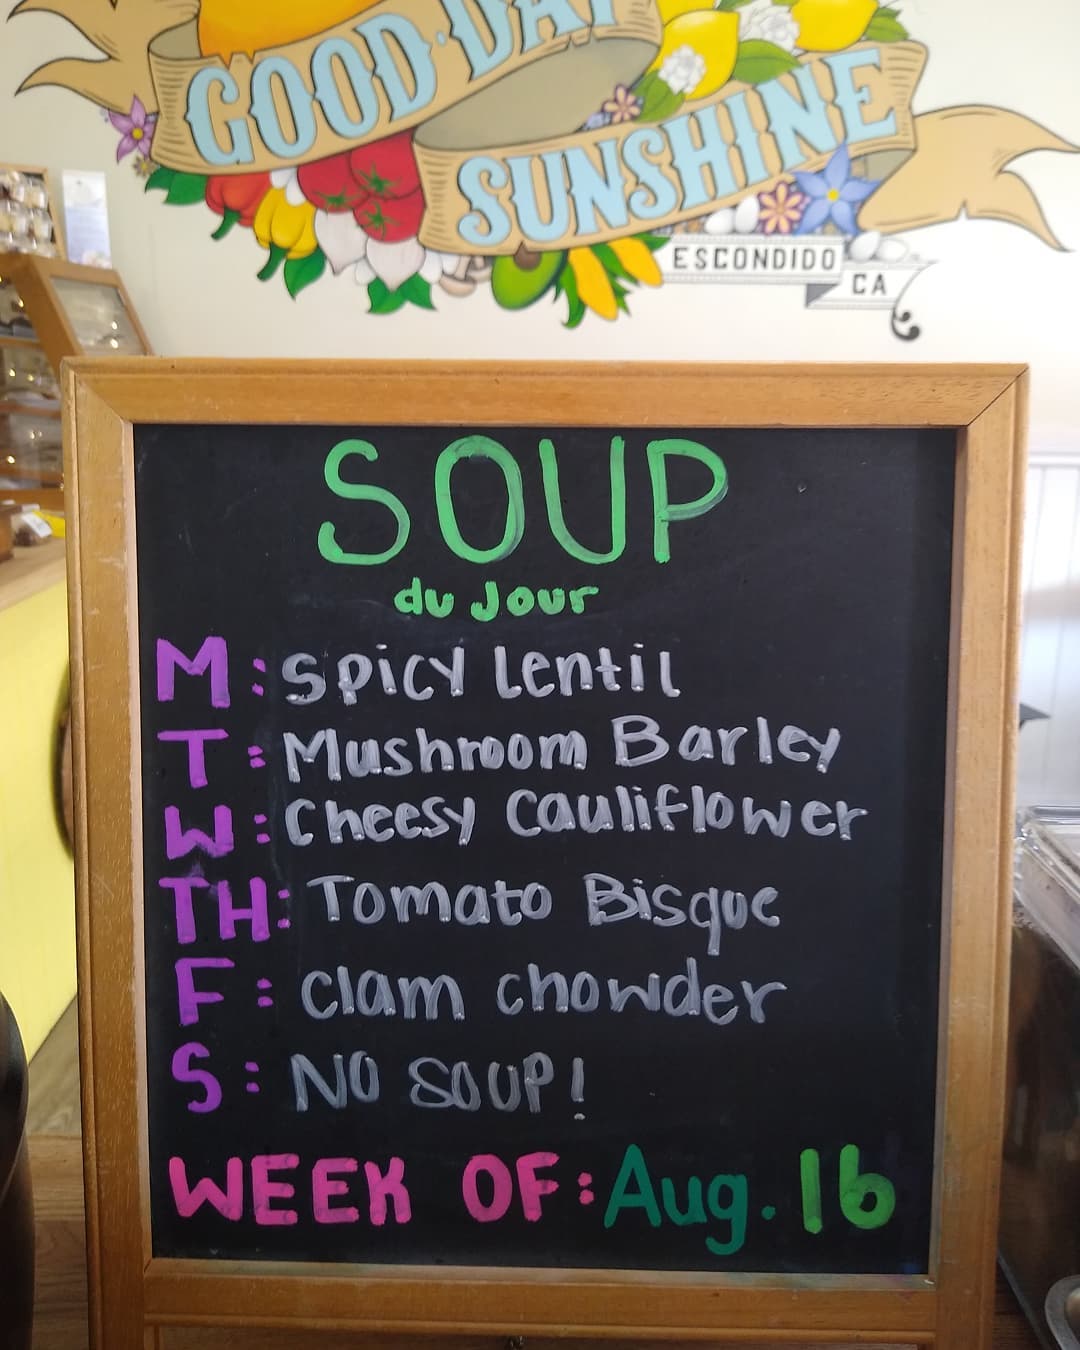 GOOD·DAY
SUNSHINE
ESCONDIDO
CA
SOUP
du Jour
M: Spicy Lentil
T: Mushroom Barley
W: Cheesy Cauliflower
TH: Tomato Bisque
F: Clam chowder
S: NO SOUP!
WEEK OF: Aug. 16